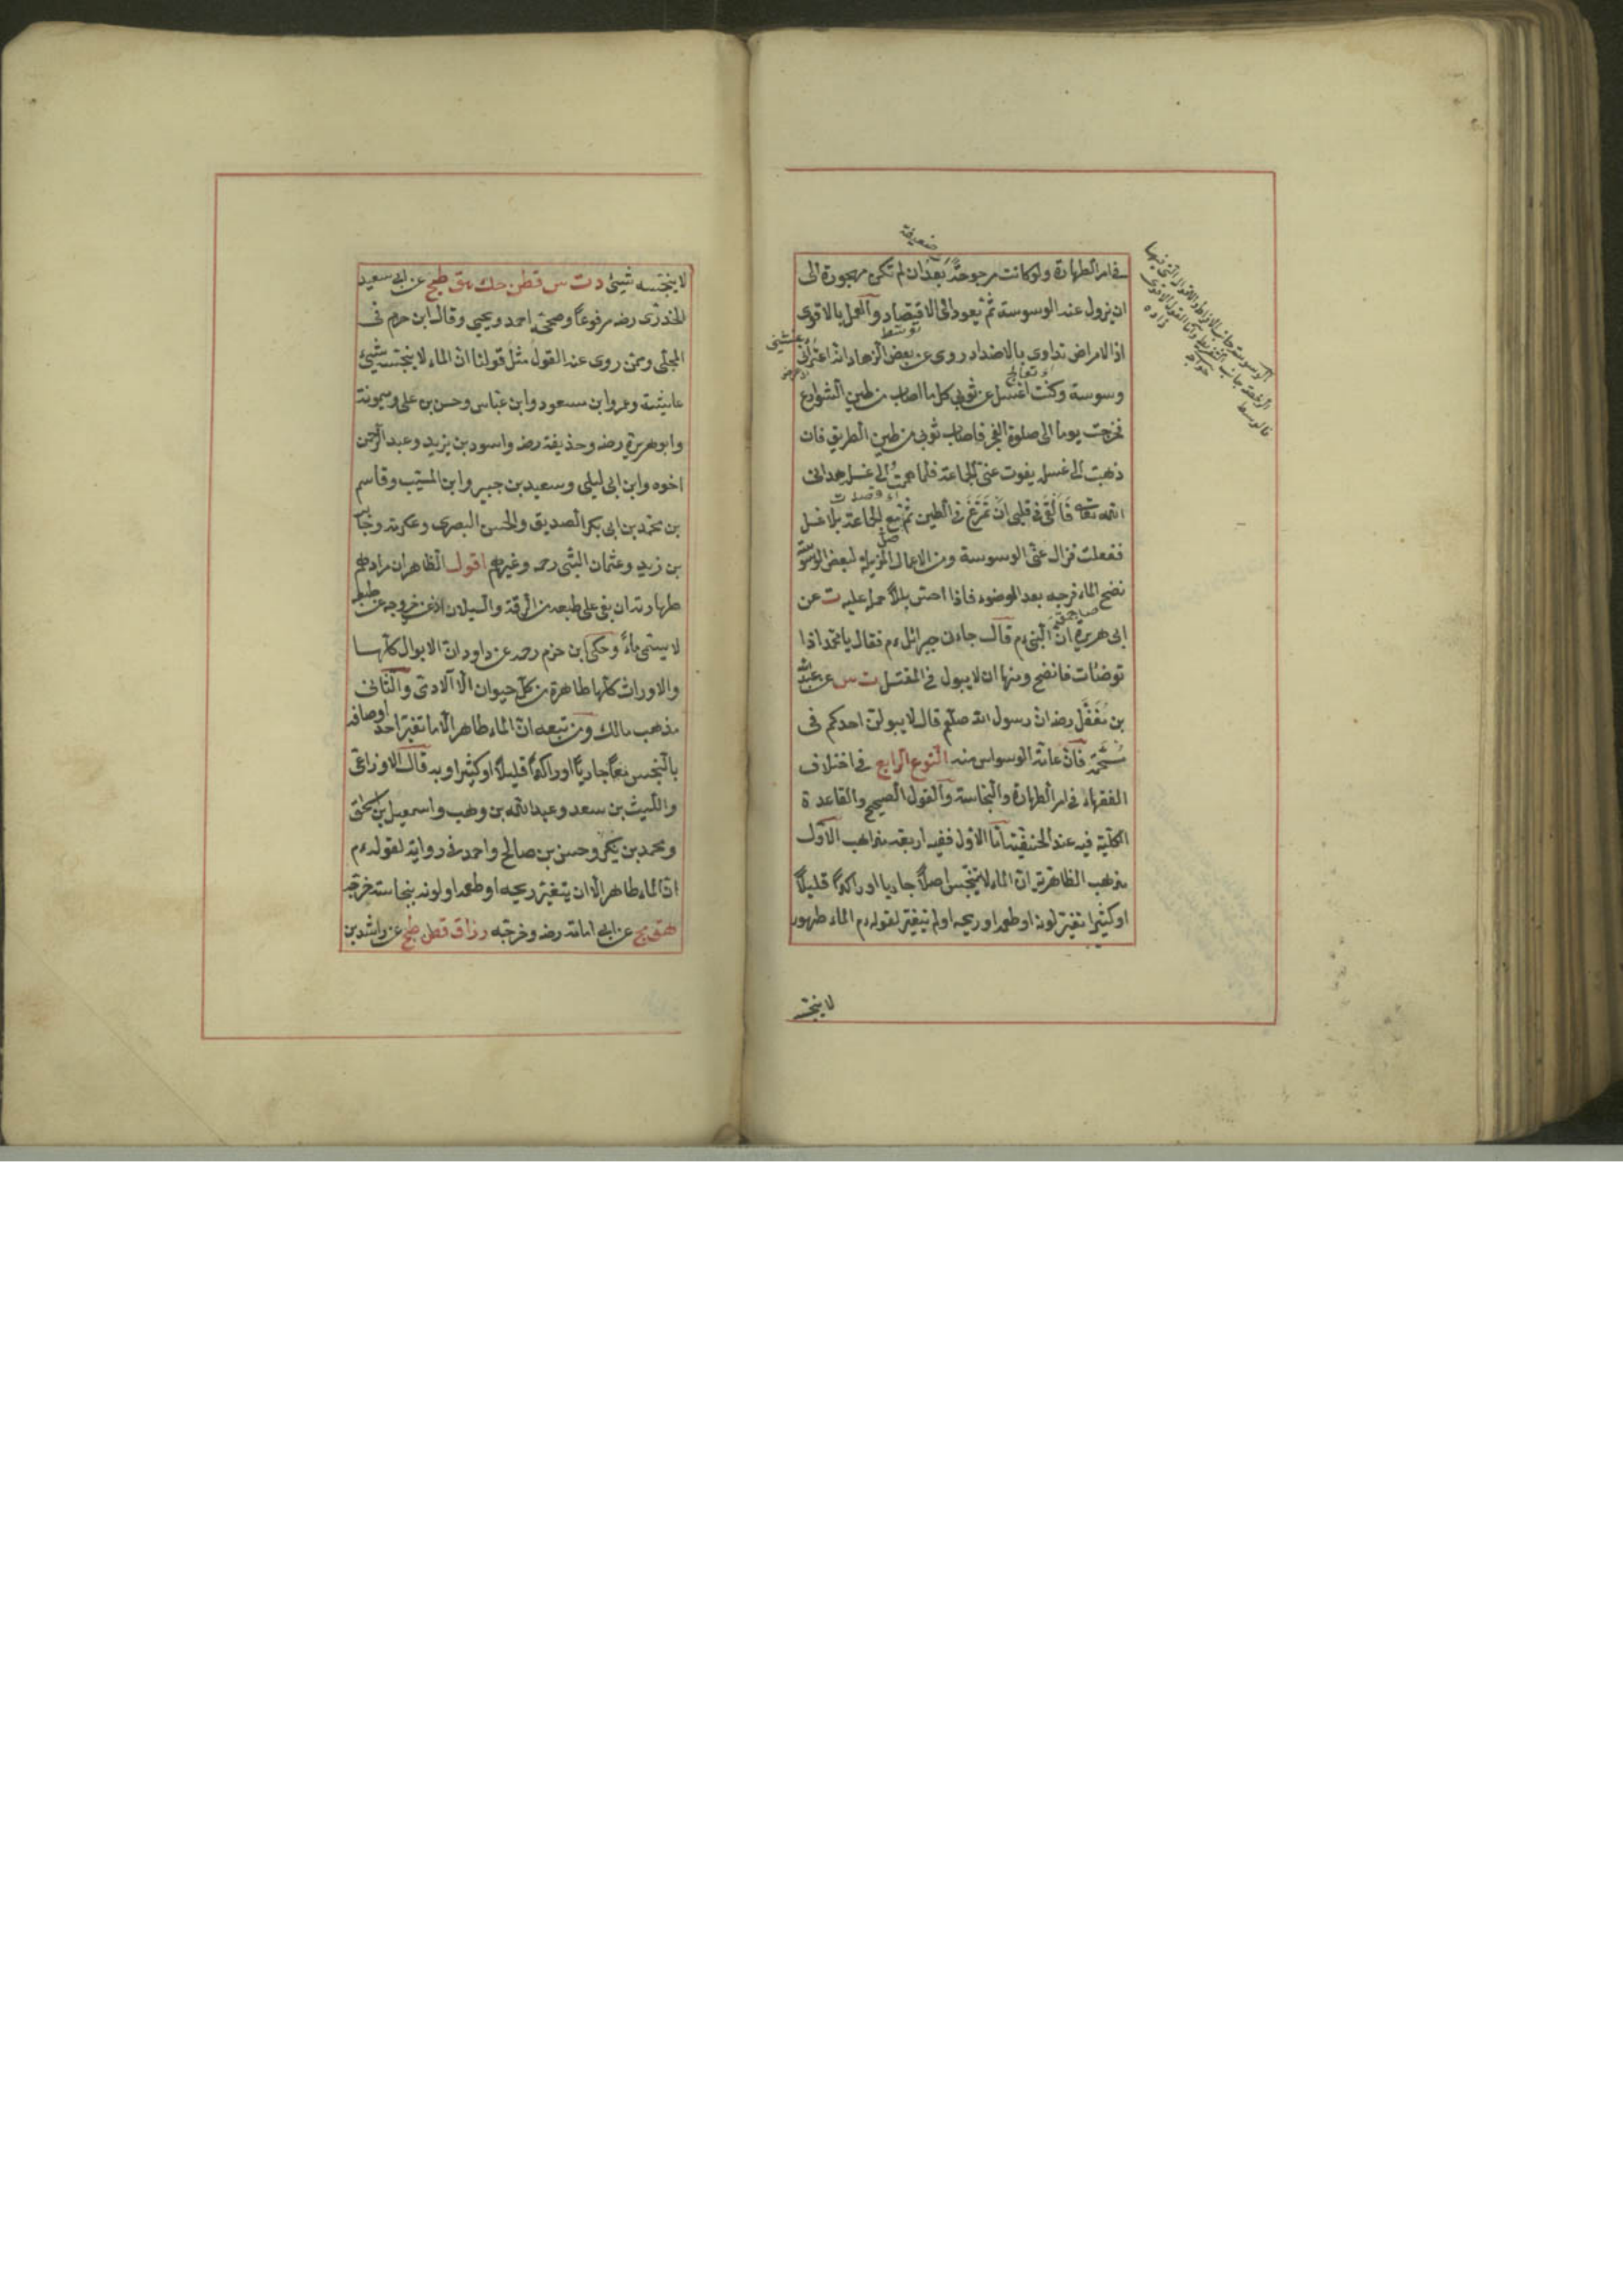 في امر الطهارة ولو كانت مرجوحة بعد ان لم تكن مهجورة الى
ضعيفة
ان يزول عنه الوسوسة ثم يعود الى الاقتصاد والعمل بالاقوى
توسط
اذ الامراض تداوى بالاضداد روى عن بعض الزهاد انه اعترانى
وسوسة وكنت اغسل عن ثوبى كل ما اصاب من طين الشوارع
فخرجت يوما الى صلوة الفجر فاصاب ثوبى من طين الطريق فان
ذهبت الى غسله يفوت عنى الجماعة فلما هممت الى غسله هدانى
الله تعالى فالقى فى قلبى ان تمرغ فى الطين ثم مع الجماعة بلا غسل
ففعلت فزال عنى الوسوسة ومن الاعمال المزيلة لبعض الوسوسة
نضح الماء فرجه بعد الوضوء فاذا احس بللا حمله عليه ت عن
ابى هريرة ان النبى ءم قال جاءنى جبرائل ءم فقال يا محمد اذا
توضئات فانضح ومنها ان لا يبول فى المغتسل ت س عن عبد الله
بن مغفل رضه ان رسول الله صلعم قال لا يبولن احدكم فى
مستحمه فان عامة الوسواس منه النوع الرابع فى اختلاف
الفقهاء فى امر الطهارة والنجاسة والقول الصحيح والقاعدة
الكلية فيه عند الحنفية اما الاول ففيه اربعة مذاهب الاول
مذهب الظاهرية ان الماء لا يتنجس اصلا جاريا او راكدا قليلا
او كثيرا تغير لونه او طعمه او ريحه او لم يتغير لقوله ءم الماء طهور
لا ينجسه
لا ينجسه شيئ د ت س قطن حك هق طح عن ابى سعيد
الخدرى رضه مرفوعا وصححه احمد ويحيى وقال ابن حزم فى
المحلى وممن روى عنه القول مثل قولنا ان الماء لا ينجسه شيئ
عايشة وعمر وابن مسعود وابن عباس وحسن بن على وميمونة
وابو هريرة رضه وحذيفة رضه واسود بن يزيد وعبد الرحمن
اخوه وابن ابى ليلى وسعيد بن جبير وابن المسيب وقاسم
بن محمد بن ابى بكر الصديق والحسن البصرى وعكرمة وجابر
بن زيد وعثمان البتى رحه وغيرهم اقول الظاهر ان مرادهم
طهارته ان بقى على طبعه من الرقة والسيلان اذ عند خروجه عن طبعه
لا يسمى ماء وحكى ابن حزم رحه عن داود ان الابوال كلها
والاوراث كلها طاهرة من كل حيوان الا الادمى والثانى
مذهب مالك ومن تبعه ان الماء طاهر الا ما تغير احد اوصافه
بالنجس معا جاريا او راكدا قليلا او كثيرا وبه قال الاوزاعى
والليث بن سعد وعبد الله بن وهب واسمعيل بن اسحق
ومحمد بن بكير وحسن بن صالح واحمد فى رواية لقوله ءم
ان الماء طاهر الا ان يتغير ريحه او طعمه او لونه بنجاسة خرجه
هق مج عن ابى امامة رضه وخرجه رزاق قطن طح عن راشد بن